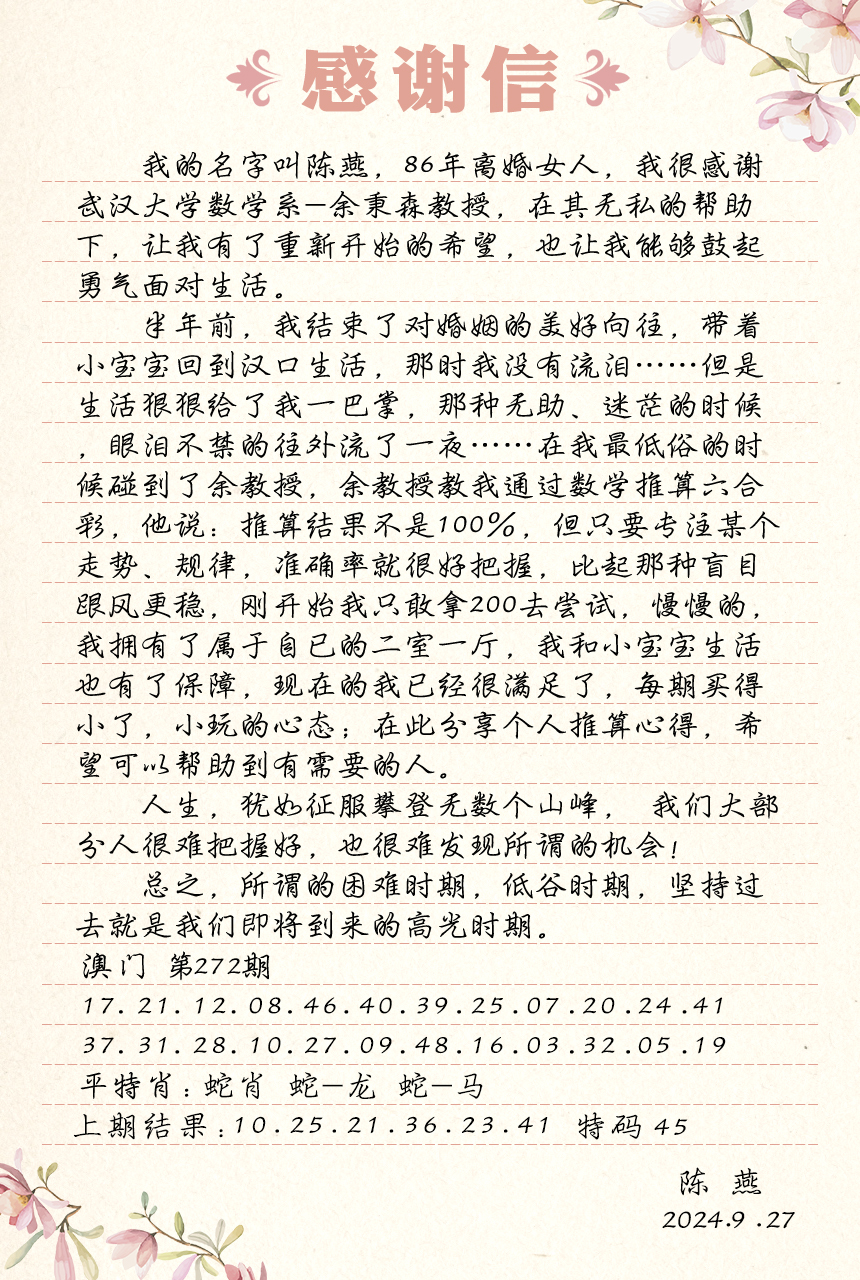 感谢信
我的名字叫陈燕，86年离婚女人，我很感谢
武汉大学数学系—余秉森教授，在其无私的帮助
下，让我有了重新开始的希望，也让我能够鼓起
勇气面对生活。
半年前，我结束了对婚姻的美好向往，带着
小宝宝回到汉口生活，那时我没有流泪……但是
生活狠狠给了我一巴掌，那种无助、迷茫的时候
，眼泪不禁的往外流了一夜……在我最低俗的时
候碰到了余教授，余教授教我通过数学推算六合
彩，他说：推算结果不是100%，但只要专注某个
走势、规律，准确率就很好把握，比起那种盲目
跟风更稳，刚开始我只敢拿200去尝试，慢慢的，
我拥有了属于自已的二室一厅，我和小宝宝生活
也有了保障，现在的我已经很满足了，每期买得
小了，小玩的心态；在此分享个人推算心得，希
望可以帮助到有需要的人。
人生，犹如征服攀登无数个山峰， 我们大部
分人很难把握好，也很难发现所谓的机会！
总之，所谓的困难时期，低谷时期，坚持过
去就是我们即将到来的高光时期。
澳门 第272期
17.21.12.08.46.40.39.25.07.20.24.41
37.31.28.10.27.09.48.16.03.32.05.19
平特肖：蛇肖 蛇—龙 蛇—马
上期结果：10.25.21.36.23.41 特码 45
陈 燕
2024.9.27